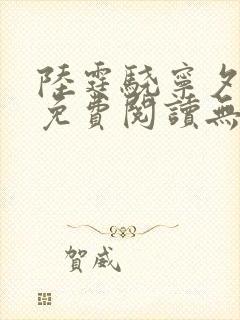 陸霆驍寧夕
免費閱讀無
賀威